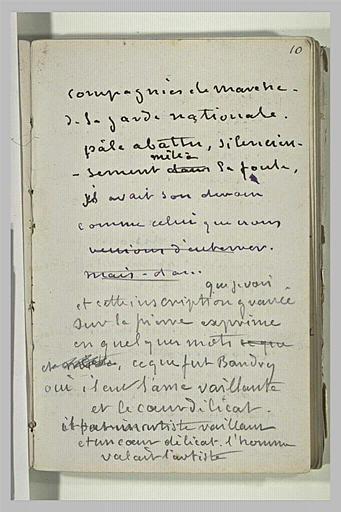 10
compagnies de marche -
de la garde nationale.
pâle abattu, silencieu-
mêlé
- sement dans la foule,
avait son devoir
comme celui que nous
venions d'enterrer.
mais - da...
que je vois
et cette inscription gravée
sur la pierre exprime
en quelques mots ce que
ce que fut Baudry
oui il eut l'âme vaillante
et le cœur délicat.
il fut un artiste vaillant
et un cœur délicat. l'homme
valait l'artiste